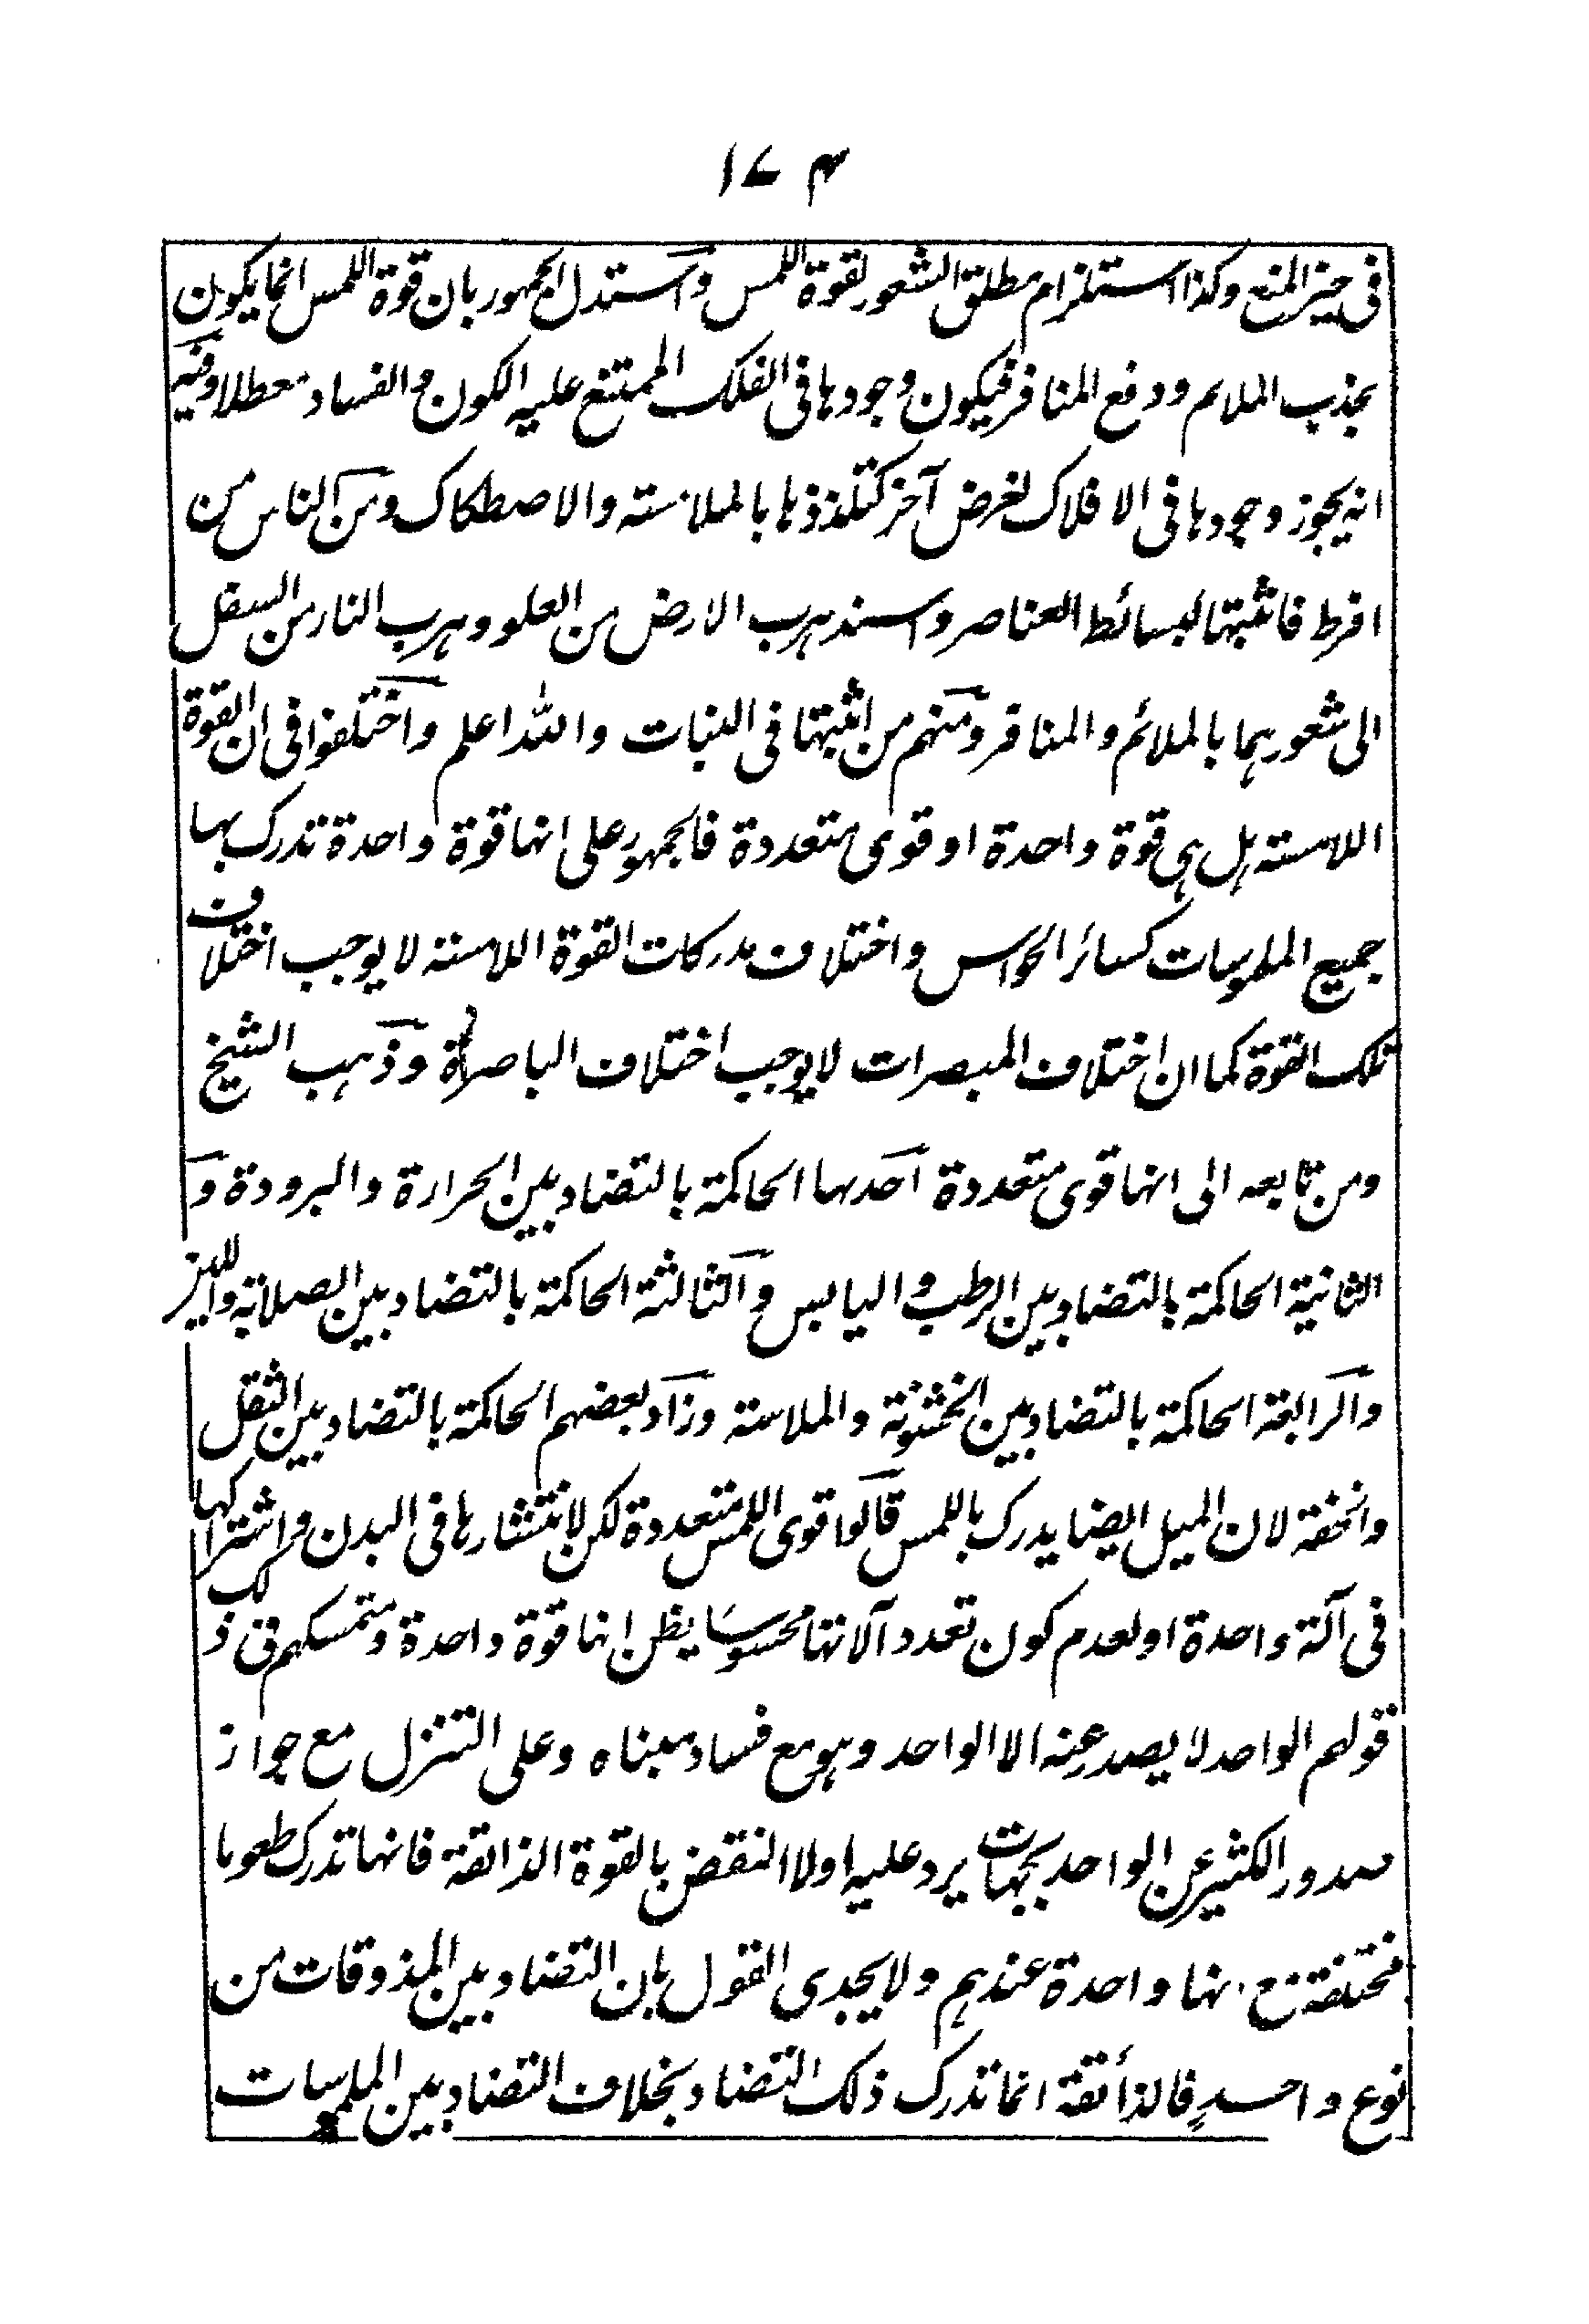 ۱۷۴
فى حيز المنع وكذا استلزام مطلق الشعور لقوة اللمس واستدل الجمهور بان قوة اللمس انما يكون
بجذب الملائم ودفع المنافر فيكون وجودها فى الفلك الممتنع عليه الكون والفساد معطلا وفيه
انه يجوز وجودها فى الافلاك لغرض آخر كتلذذها بالملامسته والاصطكاك ومن الناس من
افرط فاثبتها لبسائط العناصر واسند هرب الارض من العلو وهرب النار من السفل
الى شعورهما بالملائم والمنافر ومنهم من اثبتها فى النبات والله اعلم واختلفوا فى ان القوة
اللامسته هل هى قوة واحدة او قوى متعددة فالجمهور على انها قوة واحدة تدرك بها
جميع الملموسات كسائر الحواس واختلاف مدركات القوة اللامسته لا يوجب اختلاف
تلك القوة كما ان اختلاف المبصرات لا يوجب اختلاف الباصرة وذهب الشيخ
ومن تابعه الى انها قوى متعددة احدها الحاكمة بالتضاد بين الحرارة والبرودة و
الثانية الحاكمة بالتضاد بين الرطب واليابس والثالثة الحاكمة بالتضاد بين الصلابة واللين
والرابعة الحاكمة بالتضاد بين الخشونة والملاسته وزاد بعضهم الحاكمة بالتضاد بين الثقل
والخفة لان الميل ايضا يدرك باللمس قالوا قوى اللمس متعددة لكن لانتشارها فى البدن واشتراكها
فى آلة واحدة او لعدم كون تعدد آلاتها محسوسا يظن انها قوة واحدة ومتمسكهم فى ذلك
قولهم الواحد لا يصدر عنه الا الواحد وهو مع فساد مبناه وعلى التنزل مع جواز
صدور الكثير عن الواحد بجهات يرد عليه اولا النقض بالقوة الذائقة فانها تدرك طعوما
مختلفة مع انها واحدة عندهم ولا يجدى القول بان التضاد بين المذوقات من
نوع واحد فالذائقة انما تدرك ذلك التضاد بخلاف التضاد بين الملموسات